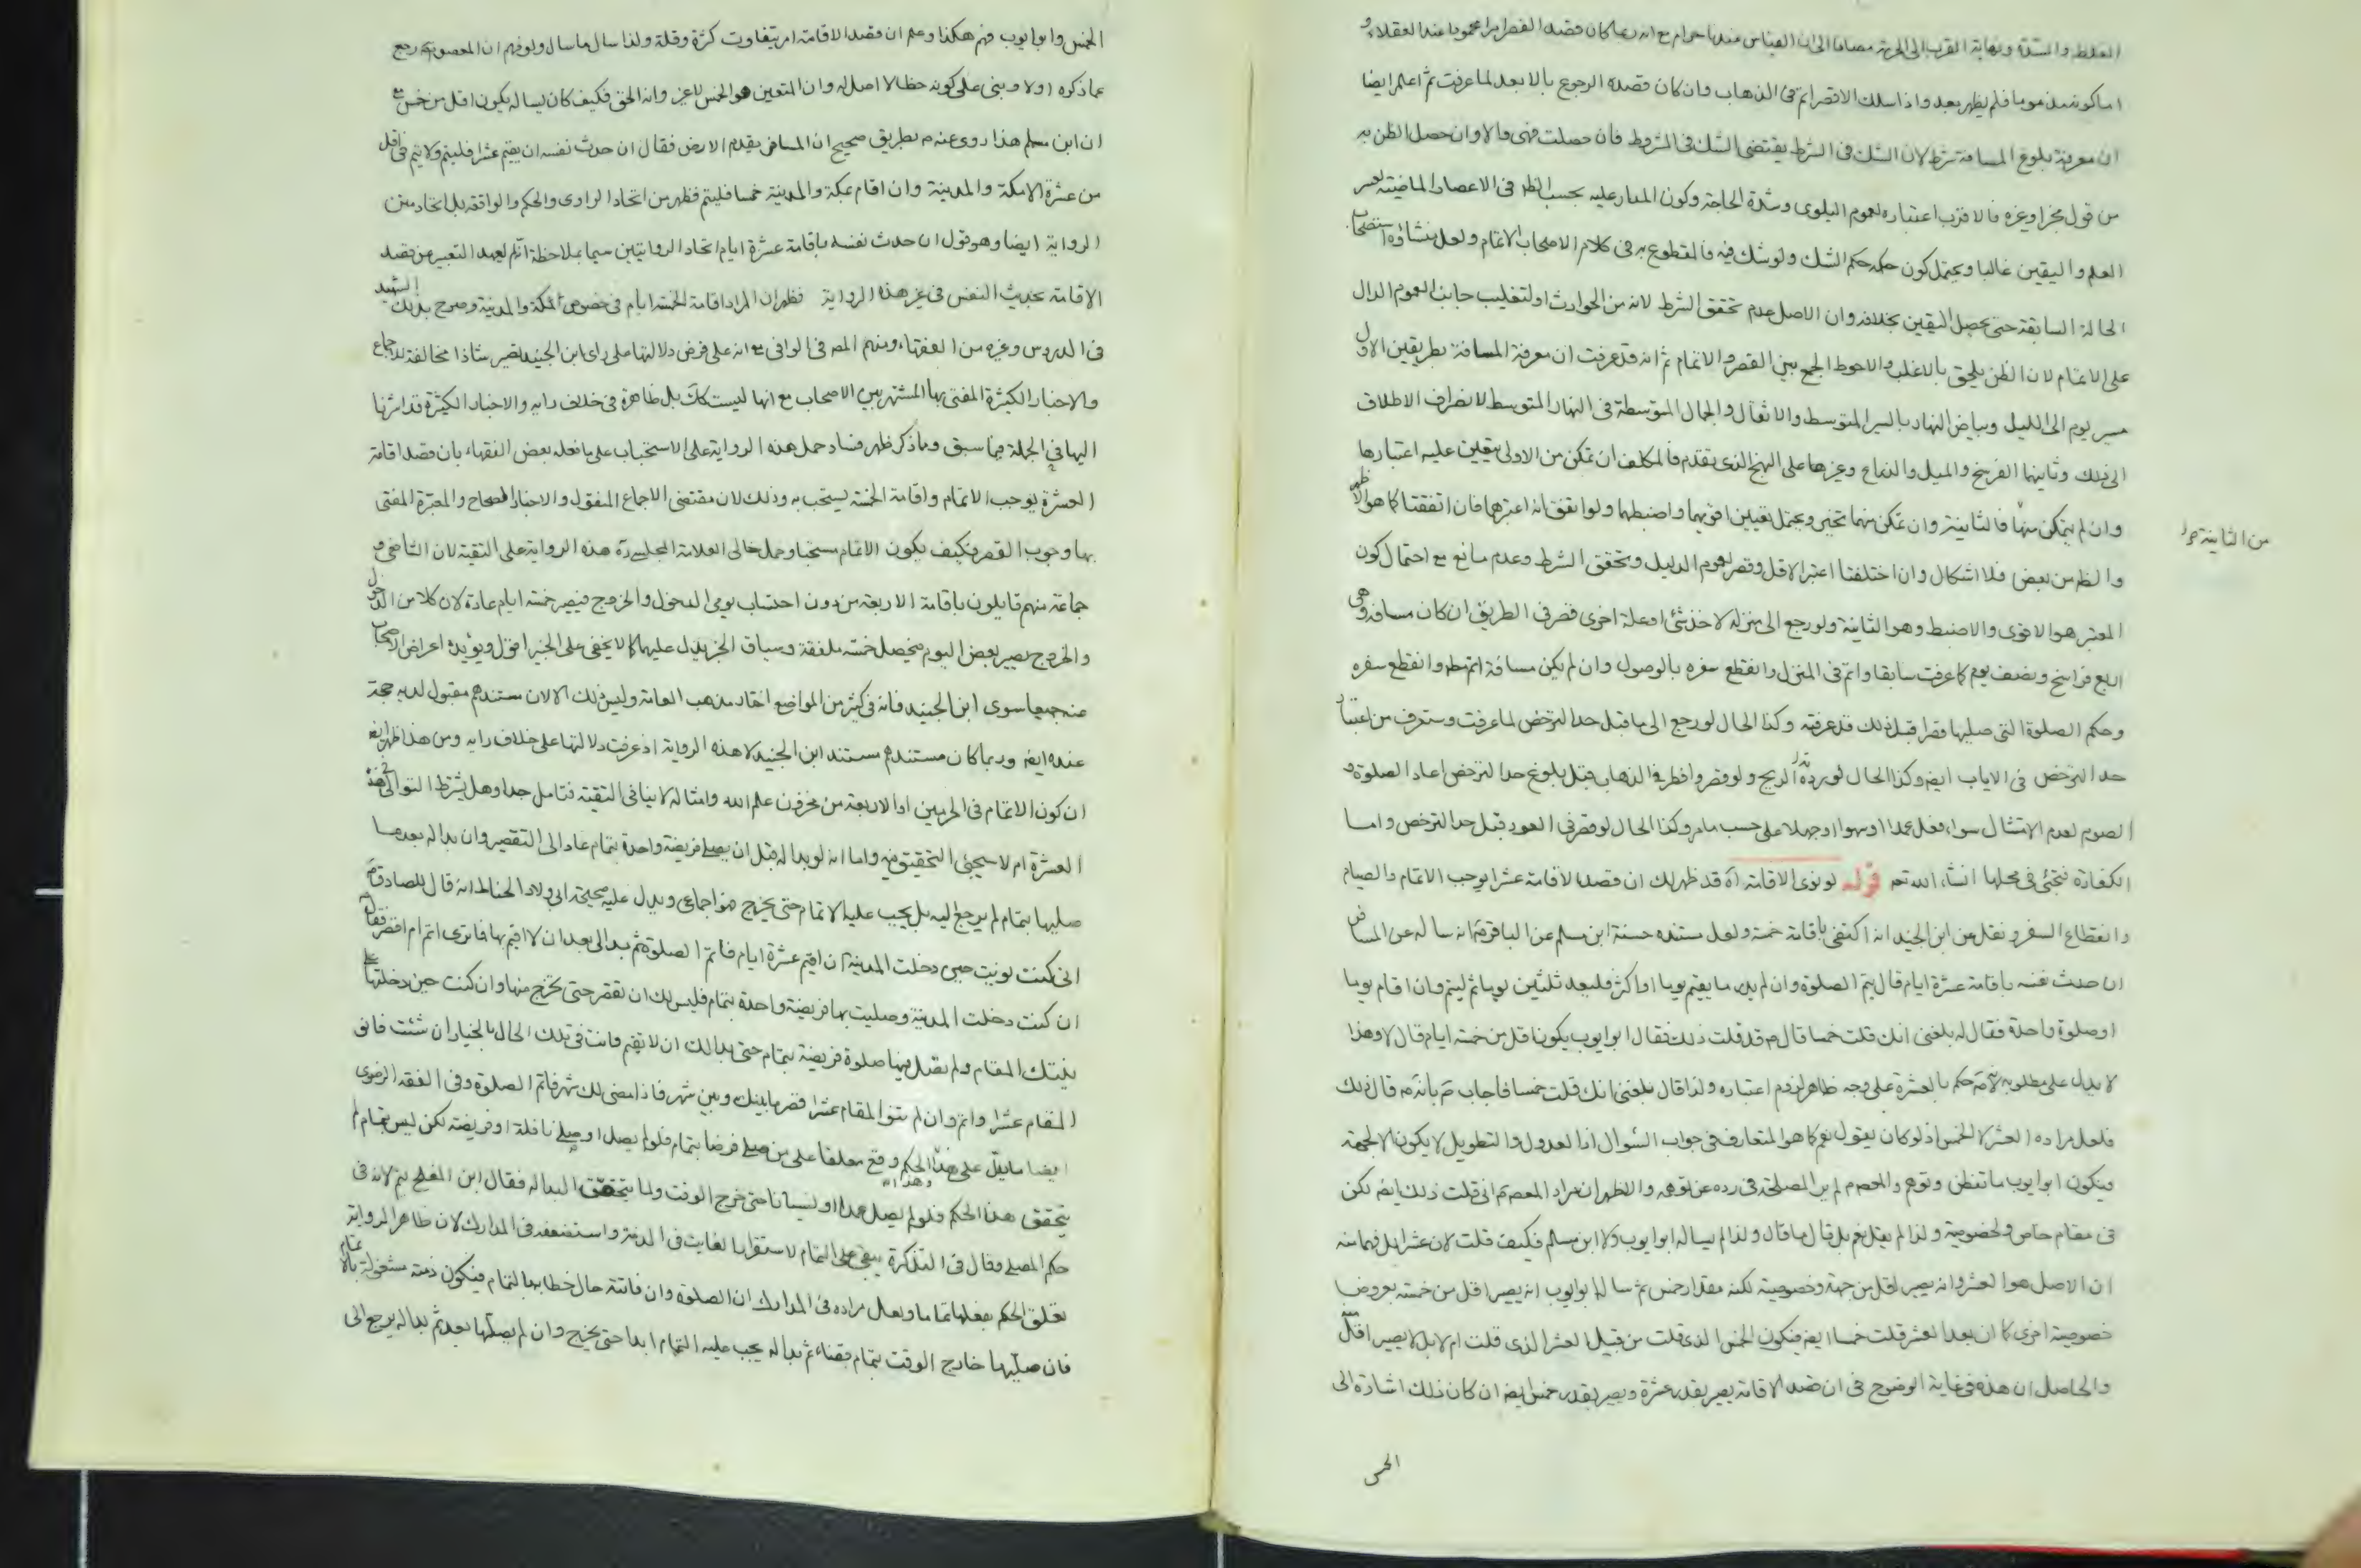 الغلط والشدة ونهاية القرب الى الحرمة مضافا الى ان القياس عندنا حرام مع انه ربما كان قصد القصر امرا محمودا عند العقلاء و
اما كونه مذموما فلم يظهر بعد واذا سلك الاقصر اتم فى الذهاب وان كان قصده الرجوع بالابعد لما عرفت ثم اعلم ايضا
ان معرفة بلوغ المسافة شرط لان الشك فى الشرط يقتضى الشك فى المشروط فان حصلت فهى والا وان حصل الظن به
من قول مخبر او غيره فالاقرب اعتباره لعموم البلوى وشدة الحاجة وكون المدار عليه بحسب الظ فى الاعصار الماضية لعسر
العلم واليقين غالبا ويحتمل كون حكمه حكم الشك ولو شك فيه فالمقطوع به فى كلام الاصحاب الاتمام ولعل منشاؤه استصحاب
الحالة السابقة حتى يحصل اليقين بخلافه وان الاصل عدم تحقق الشرط لانه من الحوادث او لتغليب جانب العموم الدال
على الاتمام لان الظن يلحق بالاغلب والاحوط الجمع بين القصر والاتمام ثم انه قد عرفت ان معرفة المسافة بطريقين الاول
مسير يوم الى الليل وبياض النهار بالسير المتوسط والاثقال والجمال المتوسطة فى النهار المتوسط لانصراف الاطلاق
الى ذلك وثانيهما الفرسخ والميل والذراع وغيرها على النهج الذى تقدم فالمكلف ان تمكن من الاولى يتعين عليه اعتبارها
وان لم يتمكن منها فالثانية وان تمكن منهما تخير ويحتمل تعيين اقويهما واضبطهما ولو اتفق انه اعتبرهما فان اتفقتا كما هو الاظهر
من الثانية
والظ من بعض فلا اشكال وان اختلفتا اعتبر الاقل وقصر لعموم الدليل وتحقق الشرط وعدم مانع مع احتمال كون
المعتبر هو الاقوى والاضبط وهو الثانية ولو رجع الى منزله لاخذ شئ او علة اخرى قصر فى الطريق ان كان مسافة وهى
اربع فراسخ ونصف يوم كما عرفت سابقا واتم فى المنزل وانقطع سفره بالوصول وان لم يكن مسافة اتم وانقطع سفره
وحكم الصلوة التى صليها قصرا قبل ذلك قد عرفته وكذا الحال لو رجع الى ما قبل حد الترخص لما عرفت وستعرف من اعتبار
حد الترخص فى الاياب ايضا وكذا الحال لو ردته الريح ولو قصر وافطر فى الذهاب قبل بلوغ حد الترخص اعاد الصلوة و
الصوم لعدم الامتثال سواء فعل عمدا او سهوا او جهلا على حسب ما مر وكذا الحال لو قصر فى العود قبل حد الترخص واما
الكفارة فتجئ فى محلها انشاء الله تعـ قوله لو نوى الاقامة آه قد ظهر لك ان قصد الاقامة عشرا يوجب الاتمام والصيام
وانقطاع السفر ونقل عن ابن الجنيد انه اكتفى باقامة خمسة ولعل مستنده حسنة ابن مسلم عن الباقر ع انه ساله عن المسافر
ان حدث نفسه باقامة عشرة ايام قال يتم الصلوة وان لم يدر ما يقيم يوما او اكثر فليعد ثلثين يوما ثم ليتم وان اقام يوما
او صلوة واحدة فقال له بلغنى انك قلت خمسا قال ع قد قلت ذلك فقال ابو ايوب يكون اقل من خمسة ايام قال لا وهذا
لا يدل على مطلوبه لانه حكم بالعشرة على وجه ظاهر لزوم اعتباره ولذا قال بلغنى انك قلت خمسا فاجاب ع بانه قال ذلك
فلعل مراده العشر لا الخمس اذ لو كان يقول نعم كما هو المتعارف فى جواب السؤال اذ العدول والتطويل لا يكون الا لجهة
فيكون ابو ايوب ما تفطن وتوهم والمعصوم لم ير المصلحة فى رده عن توهمه والاظهر ان مراد المعصوم انى قلت ذلك ايضا لكن
فى مقام خاص ولخصوصية ولذا لم يقل نعم بل قال ما قال ولذا لم يساله ابو ايوب ولا ابن مسلم فكيف قلت لان عشرا بل فهما منه
ان الاصل هو العشر وانه يصير اقل من جهة وخصوصية لكنه مقدار خمس ثم ساله ابو ايوب انه يصير اقل من خمسة بعروض
خصوصية اخرى كما ان بعد العشر قلت خمسا ايضا فيكون الخمس الذى قلت من قبيل العشر الذى قلت ام لا بل لا يصير اقل منه
والحاصل ان هذه فى غاية الوضوح فى ان قصد الاقامة يصير بقدر عشرة ويصير بقدر خمس ايضا ان كان ذلك اشارة الى
الخمس
الخمس وابو ايوب فهم هكذا وعلم ان قصد الاقامة امر يتفاوت كثرة وقلة ولذا سال ما سال ولو فهم ان المعصوم رجع
عما ذكره اولا وبنى على كونه خطا لا اصل له وان المتعين هو الخمس لا غير وانه الحق فكيف كان يساله يكون اقل من خمس مع
ان ابن مسلم هذا روى عنه ع بطريق صحيح ان المسافر يقدم الارض فقال ان حدث نفسه ان يقيم عشرا فليتم ولا يتم فى اقل
من عشرة الا مكة والمدينة وان اقام بمكة والمدينة خمسا فليتم فظهر من اتحاد الراوى والحكم والواقعة بل اتحاد متن
الرواية ايضا وهو قول ان حدث نفسه باقامة عشرة ايام اتحاد الروايتين سيما بملاحظة انه لم يعهد التعبير عن قصد
الاقامة بحديث النفس فى غير هذه الرواية فظهر ان المراد اقامة الخمسة ايام فى خصوص مكة والمدينة وصرح بذلك الشهيد
فى الدروس وغيره من الفقهاء ومنهم المص فى الوافى مع انه على فرض دلالتها على راى ابن الجنيد تصير شاذا مخالفة للاجماع
والاخبار الكثيرة المفتى بها المشتهر بين الاصحاب مع انها ليست كك بل ظاهرة فى خلاف رايه والاخبار الكثيرة قد اشرنا
اليها فى الجملة فيما سبق ومما ذكر ظهر فساد حمل هذه الرواية على الاستحباب على ما فعله بعض الفقهاء بان قصد اقامة
العشرة يوجب الاتمام واقامة الخمسة يستحب به وذلك لان مقتضى الاجماع المنقول والاخبار الصحاح والمعتبرة المفتى
بها وجوب القصر فكيف يكون الاتمام مستحبا وحمل خالى العلامة المجلسى ره هذه الرواية على التقية لان الشافعى و
جماعة منهم قايلون باقامة الاربعة من دون احتساب يومى الدخول والخروج فيصير خمسة ايام عادة لان كلا من الدخول
والخروج يصير بعض اليوم فيحصل خمسة ملفقة وسياق الخبر يدل عليها كما لا يخفى على الخبير اقول ويؤيده اعراض الاصحاب
عنه جميعا سوى ابن الجنيد فانه فى كثير من المواضع اختار مذهب العامة وليس ذلك الا لان مستندهم مقبول لديه حجة
عنده ايضا وربما كان مستندهم مستند ابن الجنيد لا هذه الرواية اذ عرفت دلالتها على خلاف رايه ومن هذا ظهر ايضا
ان كون الاتمام فى الحرمين او الاربعة من مخزون علم الله وامثاله لا ينافى التقية فتامل جدا وهل يشترط التوالى فى هذه
العشرة ام لا سيجئ التحقيق فيه واما انه لو بدا له قبل ان يصلى فريضة واحدة بتمام عاد الى التقصير وان بدا له بعد ما
صليها بتمام لم يرجع اليه بل يجب عليه الاتمام حتى يخرج فهو اجماعى ويدل عليه صحيحة ابى ولاد الحناط انه قال للصادق ع
انى كنت نويت حين دخلت المدينة ان اقيم عشرة ايام فاتم الصلوة ثم بدا لى بعد ان لا اقيم بها فما ترى اتم ام اقصر فقال
ان كنت دخلت المدينة وصليت بها فريضة واحدة بتمام فليس لك ان تقصر حتى تخرج منها وان كنت حين دخلتها على
نيتك المقام ولم تصل فيها صلوة فريضة بتمام حتى بدا لك ان لا تقيم فانت فى تلك الحال بالخيار ان شئت فانو
المقام عشرا واتم وان لم تنو المقام عشرا فقصر ما بينك وبين شهر فاذا مضى لك شهر فاتم الصلوة وفى الفقه الرضوى
ايضا ما يدل على هذا الحكم وهذا الحكم وقع معلقا على من صلى فرضا بتمام فلو لم يصل او صلى نافلة او فريضة لكن ليس بتمام لم
يتحقق هذا الحكم فلو لم يصل عمدا او نسيانا حتى خرج الوقت ولما يتحقق البدا له فقال ابن المفلح يتم لانه فى
حكم المصلى وقال فى التذكرة يبقى على التمام لاستقرار الفايت فى الذمة واستضعفه فى المدارك لان ظاهر الرواية
تعلق الحكم بفعلها تماما ولعل مراده فى المدارك ان الصلوة وان فاتته حال خطابها بالتمام فيكون ذمته مشغولة بالاتمام
فان صليها خارج الوقت بتمام قضاء ثم بدا له يجب عليه التمام ابدا حتى يخرج وان لم يصلها بعد ثم بدا له يرجع الى